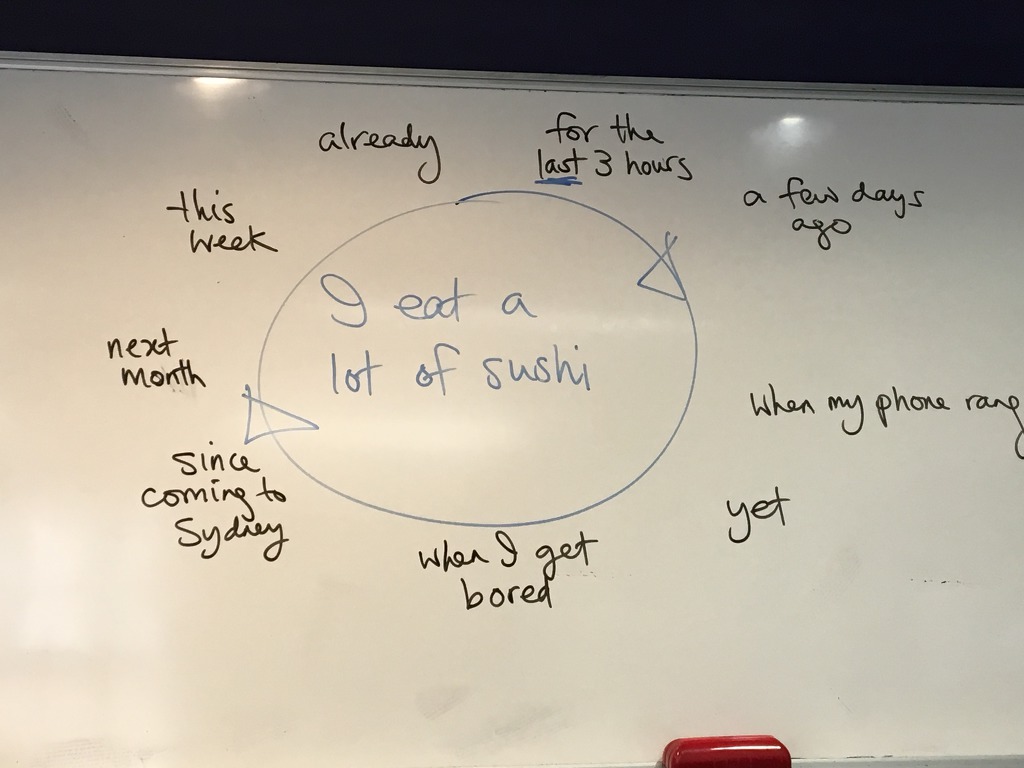 already
for the
last 3 hours
a few days
ago
this
week
I eat a
lot of sushi
next
month
when my phone rang
since
coming to
Sydney
yet
when I get
bored